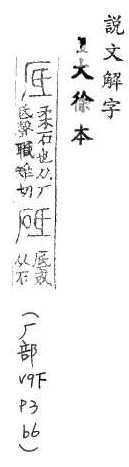 說文解字
1大徐本
厎
柔石也从厂
氐聲職雉切
砥
厎或
从石
(厂部 V9下 P3 b6)